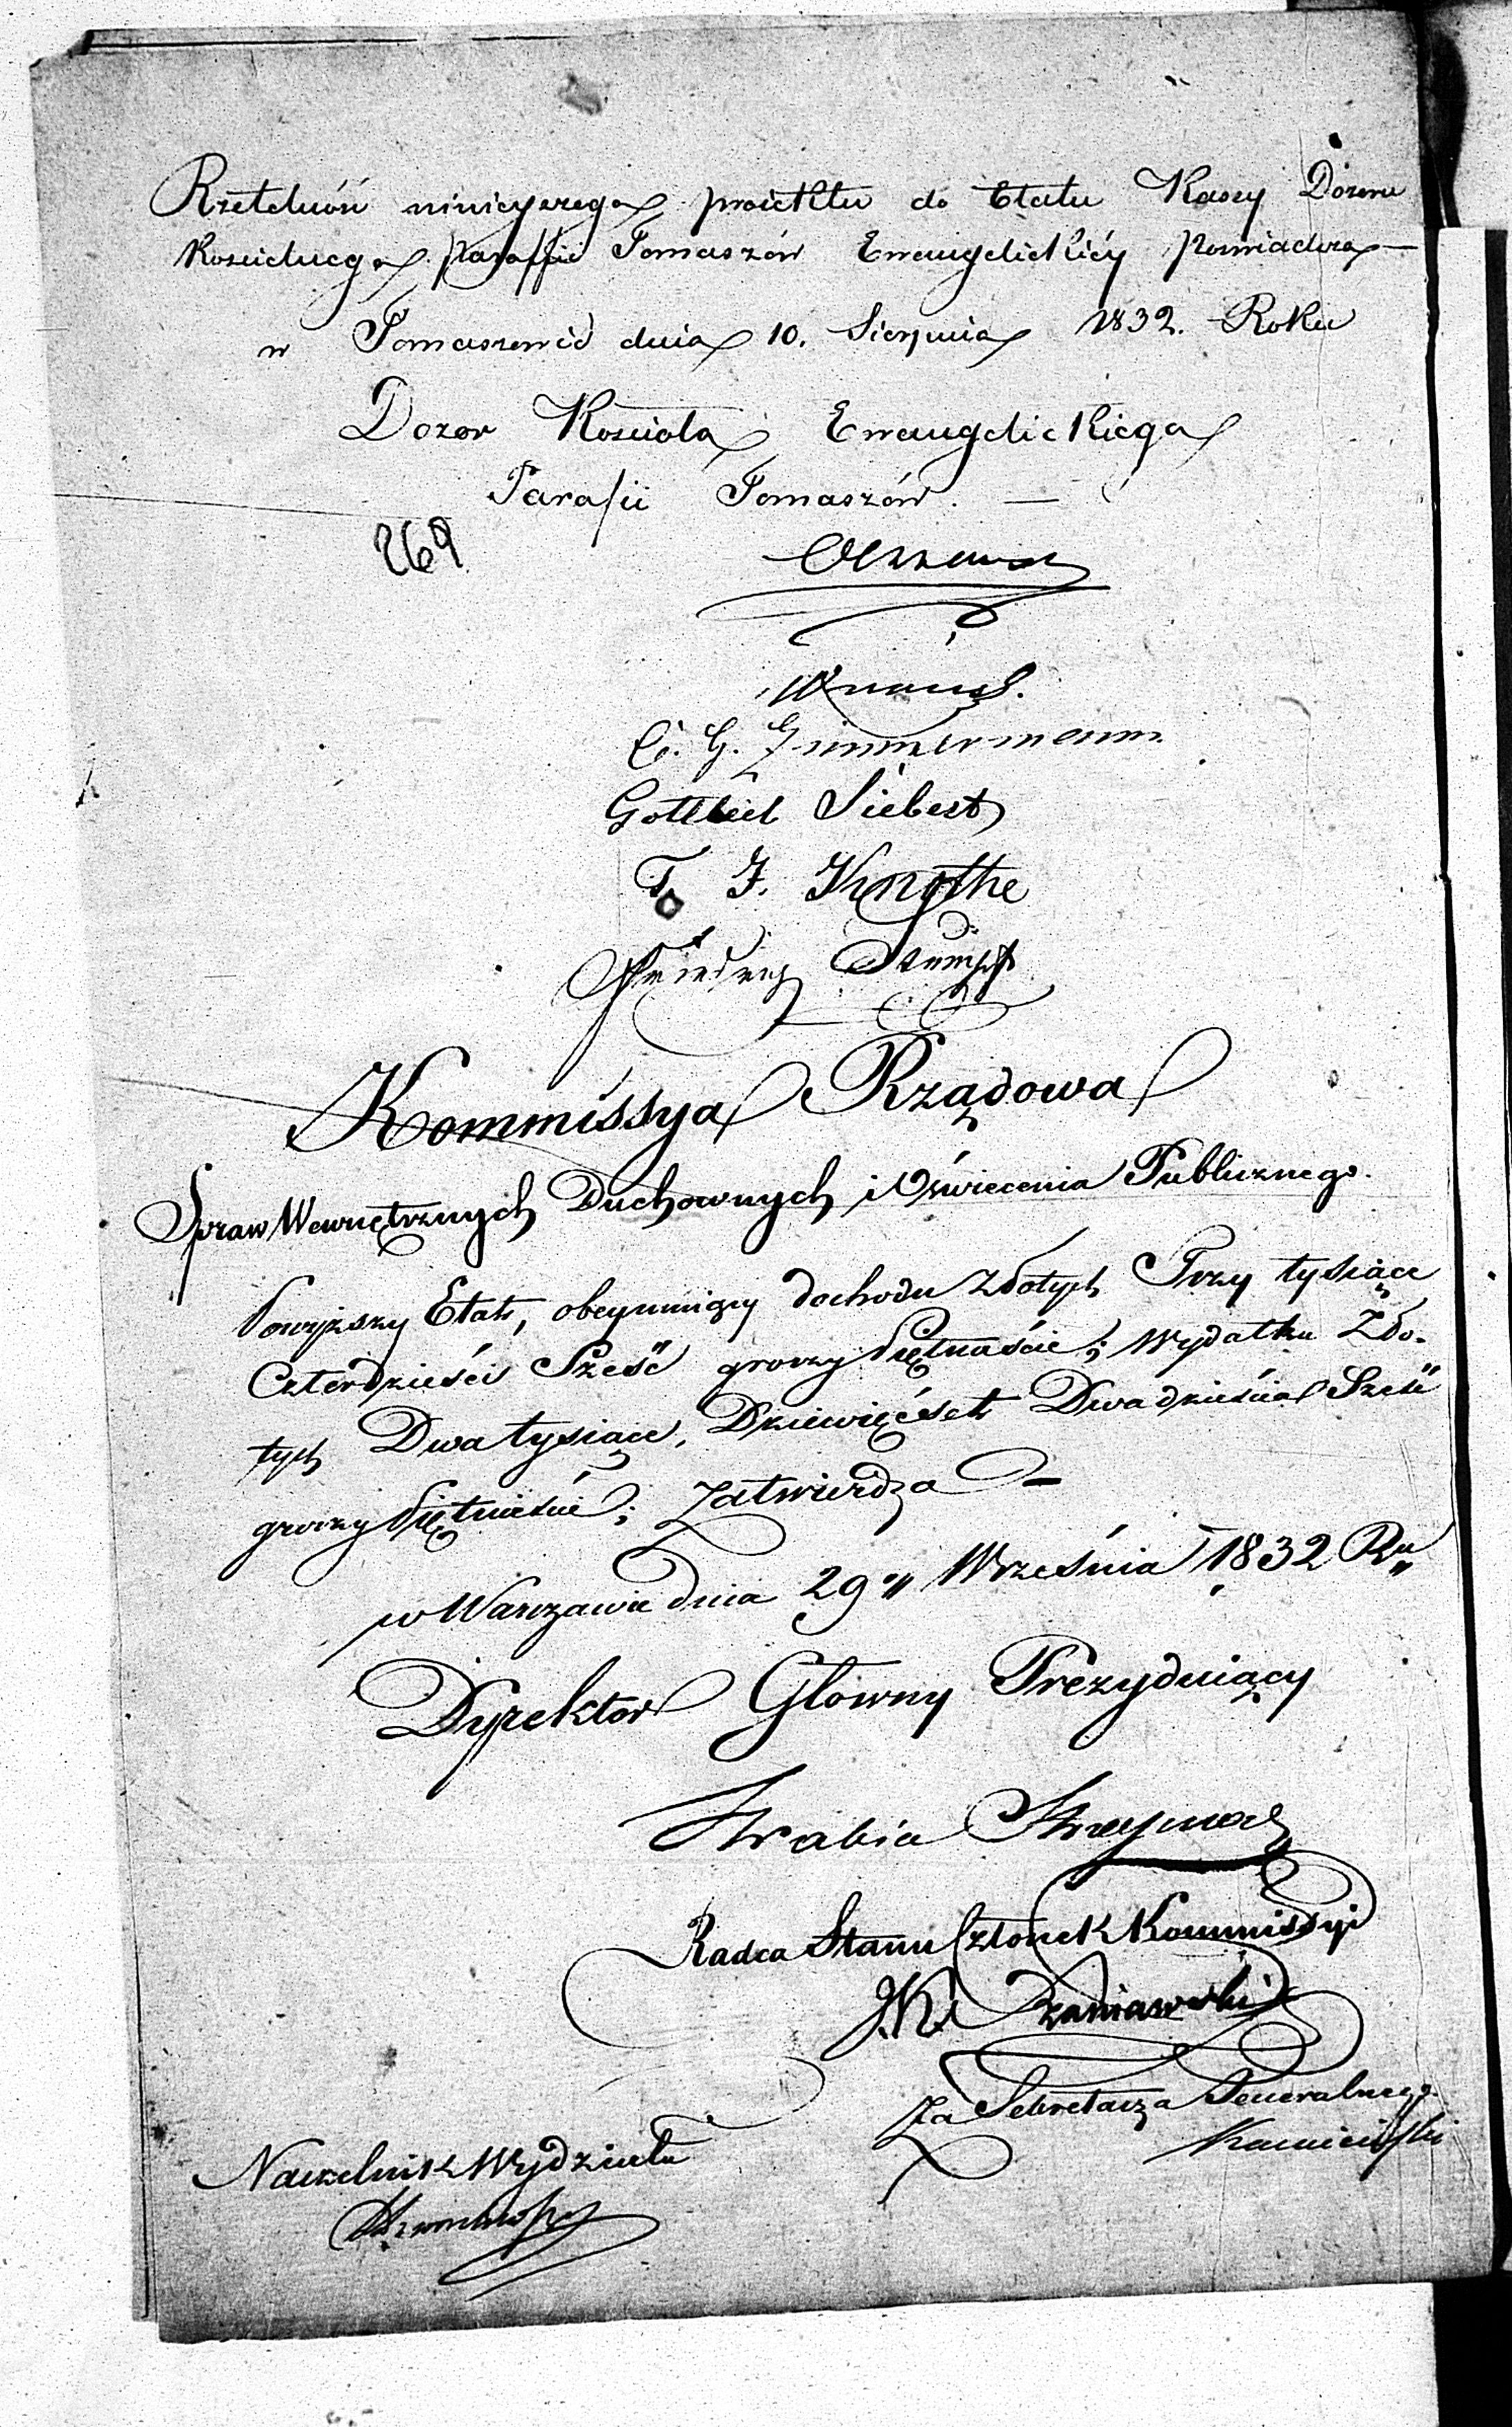 Rzetelność niniejszego proiektu do Etatu Kassy Dozoru
Kościelnego Paraffii Tomaszów Ewangelickiéy Poswiadcza —
w Tomaszowie dnia 10. Sierpnia 1832. Roku
Dozor Kościoła Ewangelickiego
Parafii Tomaszów. —
269
C. G. Zimmermann.
Gottlieb Siebert
T. F. Knothe
Friedrich Stumpf
Kommissya Rządowa
Spraw Wewnętrznych Duchownych i Oświecenia Publicznego.
Powyższy Etat, obeymuiący dochodu Złotych Trzy tysiące
Czterdzieści Sześć groszy Piętnaście; Wydatku Zło-
tych Dwa tysiące, Dziewięćset Dwadzieścia Sześć
groszy Piętnaście; Zatwierdza —
w Warszawie dnia 29 Września 1832 Ru
Dyrektor Głowny Prezyduiący
Hrabia Strzynoch
Radca Stanu Członek Kommissyi
J.K. Szaniawski
Za Sekretarza Generalnego
Naczelnik Wydziału